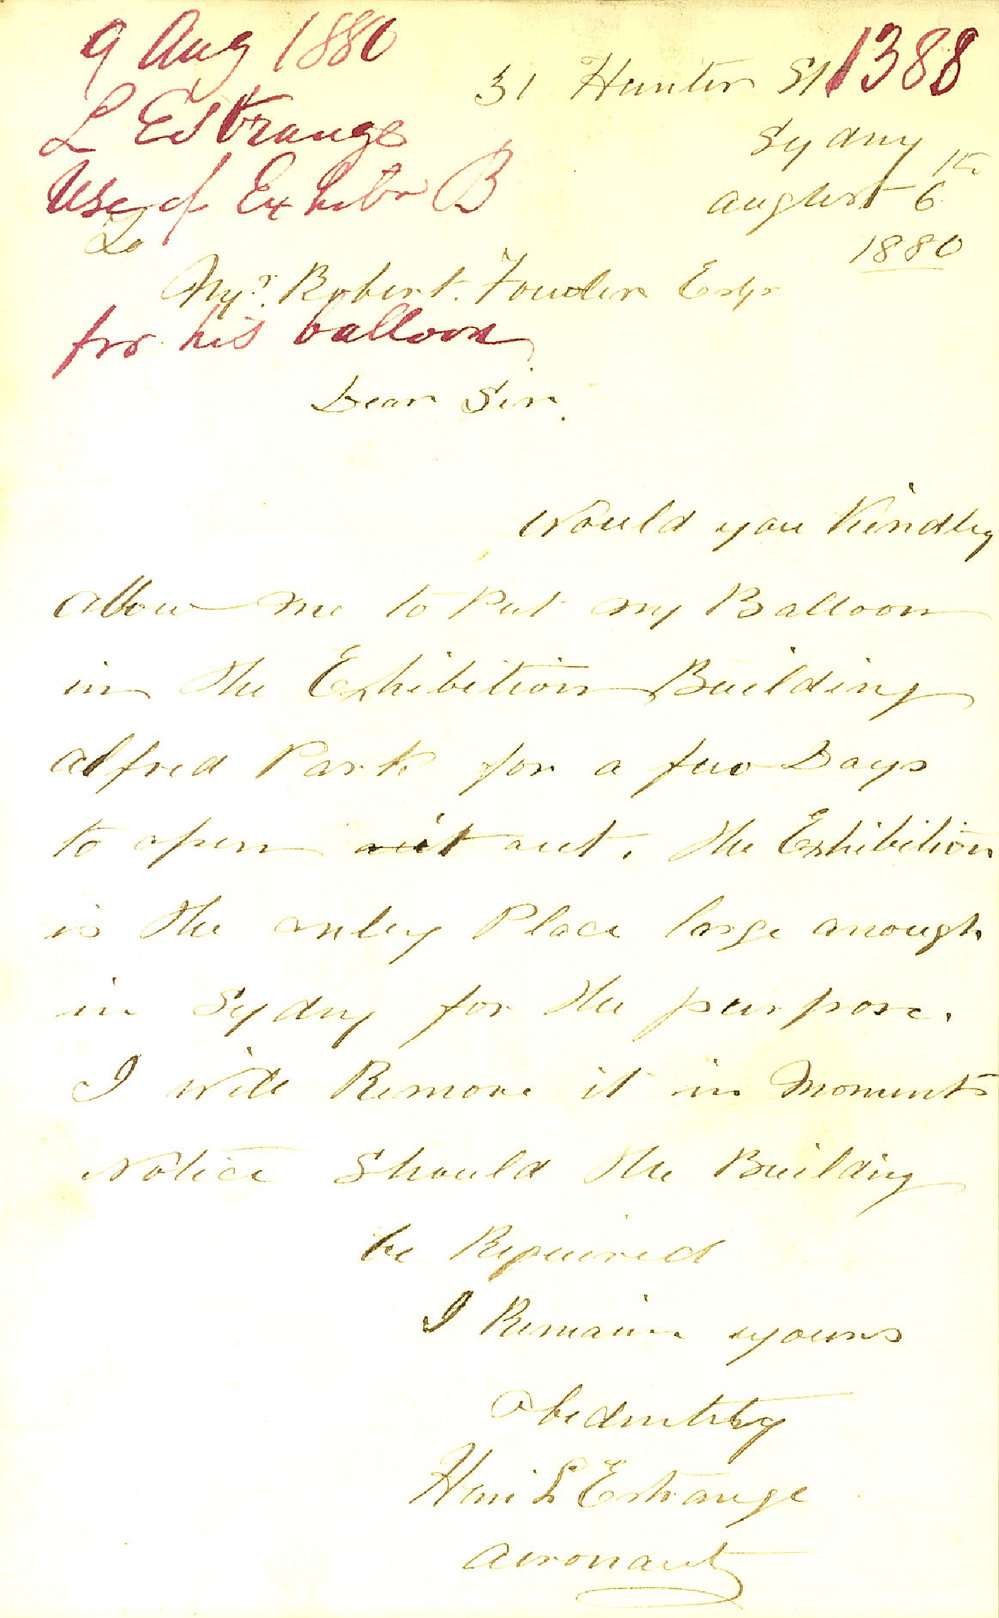 9 Aug 1880
L Estrange
Use of Exhibn B
for his balloon
1388
31 Hunter St
Sydny
august 6th
1880
To
Robert. Fowler Esqr
Dear Sir.
Would you Kindly
allow me to Put my Balloon
in the Exhibition Building
alfred Park for a few Days
to open out. the Exhibition
is the onley Place large anough
in Sydny for the purpose.
I will Remove it in Moments
Notice Should the Building
be Required
I Remain yours
obedintly
Henri L Estrange
aeronaut